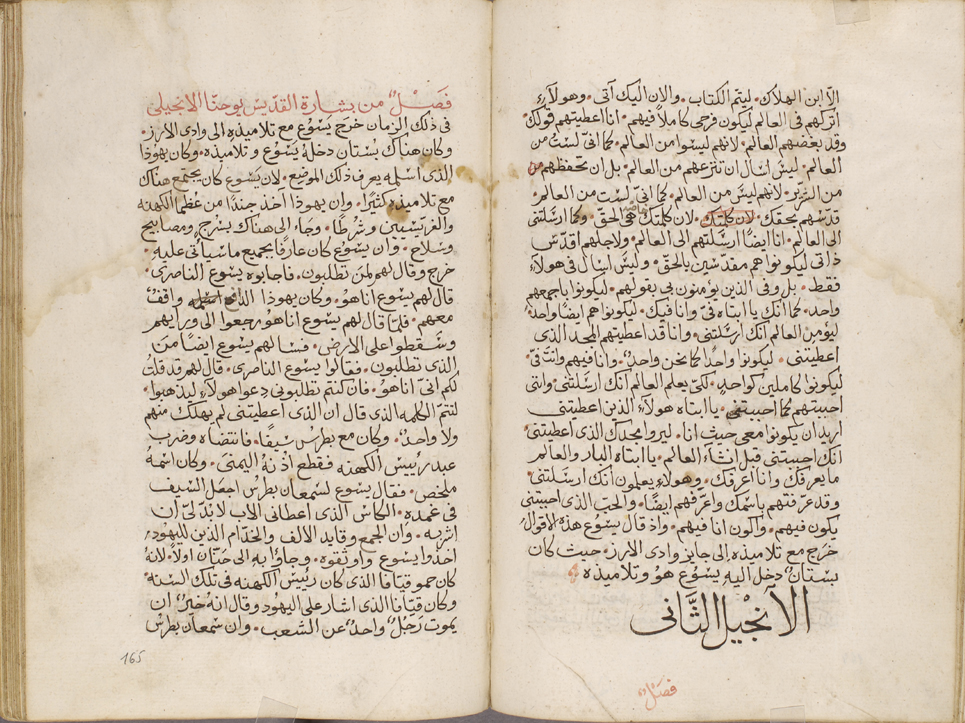 الّا ابن الهلاك. ليتم الكتاب. والان اليك آتى. وهولآء
اتركهم فى العالم ليكون فرحى كاملاً فيهم. انا اعطيتهم قولك.
وقد بغضهم العالم. لانهم ليسوا من العالم. كما انى لست من
العالم. ليس اسال ان تنزعهم من العالم. بل ان تحفظهم من
من الشرير. لانهم ليس من العالم. كما انى لست من العالم.
قدّسهم بحقك. لان كلمتك. لان كلمتك هى الحق. وكما ارسلتنى
الى العالم. انا ايضاً ارسلتهم الى العالم. ولاجلهم اقدّس
ذاتى ليكونوا هم مقدسين بالحق. وليس اسال فى هولآء
فقط. بل وفى الذين يؤمنون بى بقولهم. ليكونوا باجمعهم
واحد. كما انك يا ابتاه فىّ وانا فيك. ليكونوا هم ايضاً واحد.
ليؤمن العالم انك ارسلتنى. وانا قد اعطيتهم المجد الذى
اعطيتنى. ليكونوا واحداً كما نحن واحد. وانا فيهم وانت فىّ.
ليكونوا كاملين كواحد. لكى يعلم العالم انك ارسلتنى. وانى
احببتهم كما احببتنى. يا ابتاه هولآء الذين اعطيتنى
اريد ان يكونوا معى حيث انا. ليروا مجدك الذى اعطيتنى.
انك احببتنى قبل انشآء العالم. يا ابتاه البار والعالم
ما يعرفك وانا اعرفك. وهولآء يعلمون انك ارسلتنى.
وقد عرّفتهم باسمك واعرّفهم ايضاً. والحب الذى احببتنى
يكون فيهم. واكون انا فيهم. واذ قال يسوع هذه الاقوال
خرج مع تلاميذه الى جايز وادى الارز. حيث كان
بستان دخل اليه يسوع هو وتلاميذه
الانجيل الثانى
فصل
فصل من بشارة القديس يوحنا الانجيلى
فى ذلك الزمان خرج يسوع مع تلاميذه الى وادى الارز.
وكان هناك بستان دخله يسوع وتلاميذه. وكان يهوذا
الذى اسلمه يعرف ذلك الموضع. لان يسوع كان يجتمع هناك
مع تلاميذه كثيراً. وان يهوذا اخذ جنداً من عظما الكهنه
والفريسيين وشرطاً. وجاء الى هناك بسرج ومصابيح
وسلاح. وان يسوع كان عارفاً بجميع ما سيأتى عليه.
خرج وقال لهم لمن تطلبون. فاجابوه يسوع الناصرى.
قال لهم يسوع انا هو. وكان يهوذا واقف
معهم. فلما قال لهم يسوع انا هو رجعوا الى ورايهم
وسقطوا على الارض. فسالهم يسوع ايضاً من
الذى تطلبون. فقالوا يسوع الناصرى. قال لهم قد قلت
لكم انى انا هو. فان كنتم تطلبونى دعوا هولآء ليذهبوا.
لتتم الكلمه الذى قال ان الذى اعطيتنى لم يهلك منهم
ولا واحد. وكان مع بطرس سيفاً. فانتضاه وضرب
عبد رئيس الكهنه فقطع اذنه اليمنى. وكان اسمه
ملخص. فقال يسوع لسمعان بطرس اجعل السيف
فى غمده. الكاس الذى اعطانى الاب لا بد لى ان
اشربه. وان الجمع وقايد الالف والخدام الذين لليهود
اخذوا يسوع واوثقوه. وجاؤا به الى حنّان اولاً. لانه
كان حمو قيافا الذى كان رئيس الكهنه فى تلك السنه.
وكان قيافا الذى اشار على اليهود وقال انه خير ان
يموت رجل واحد عن الشعب. وان سمعان بطرس
165